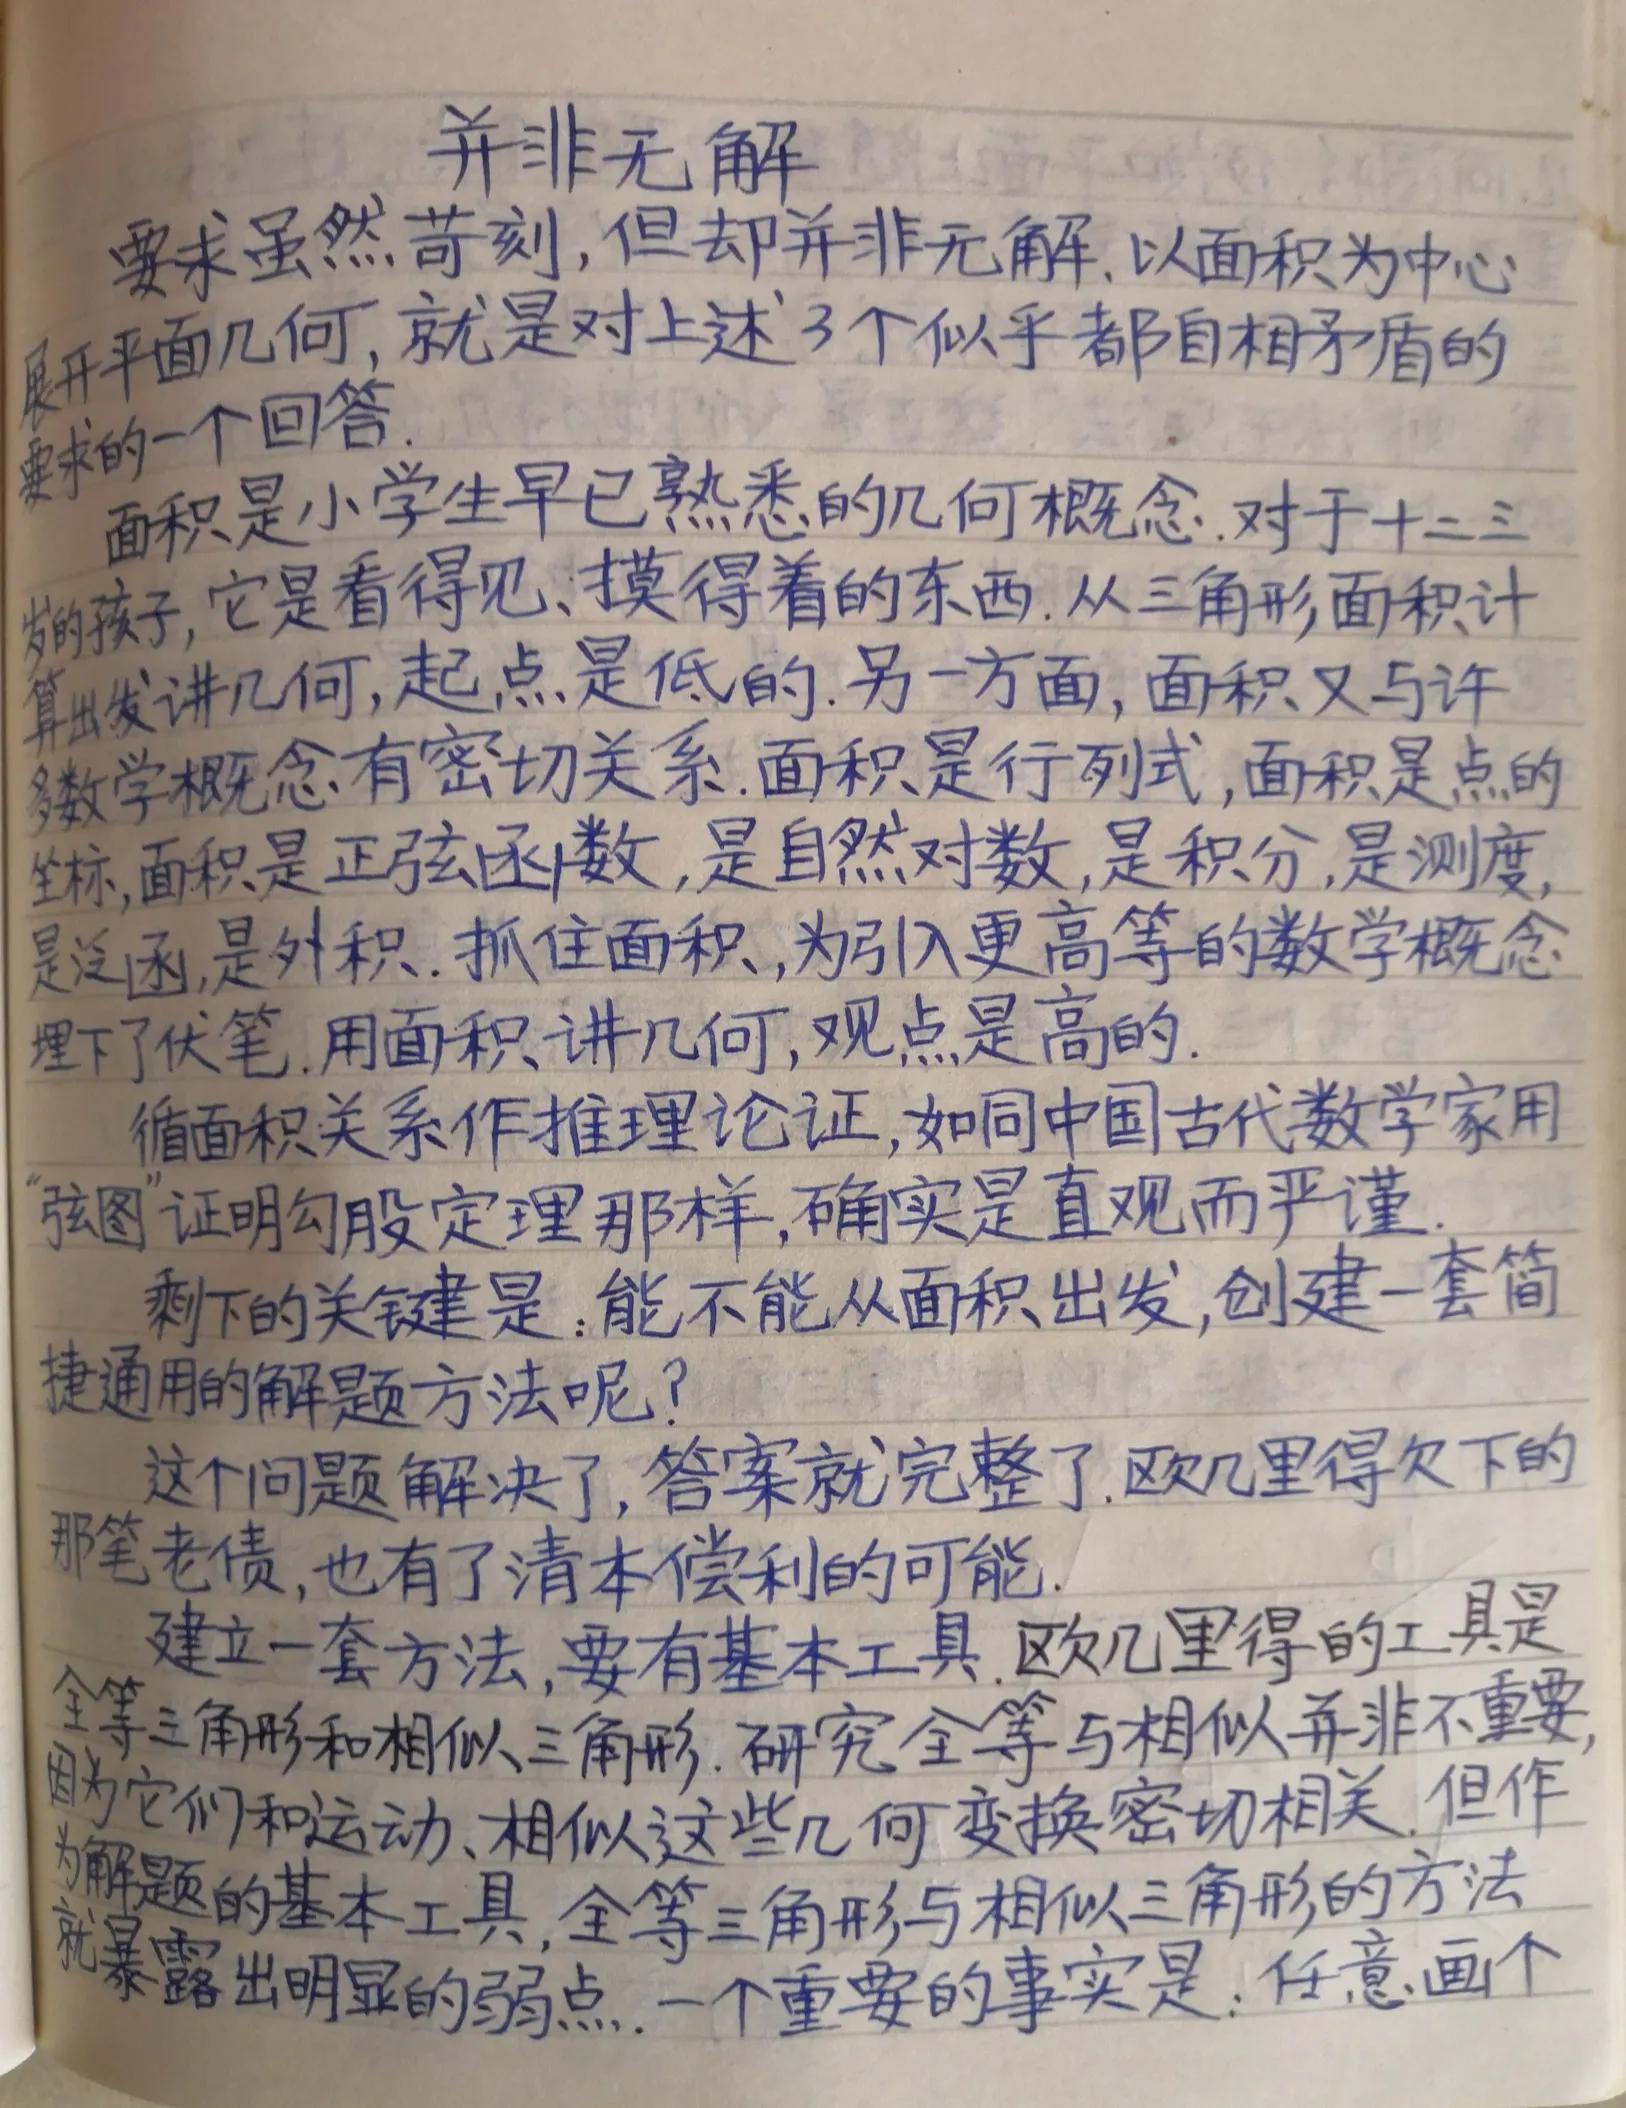 并非无解
要求虽然苛刻,但却并非无解.以面积为中心
展开平面几何,就是对上述3个似乎都自相矛盾的
要求的一个回答.
面积是小学生早已熟悉的几何概念.对于十二三
岁的孩子,它是看得见、摸得着的东西.从三角形面积计
算出发讲几何,起点是低的.另一方面,面积又与许
多数学概念有密切关系.面积是行列式,面积是点的
坐标,面积是正弦函数,是自然对数,是积分,是测度,
是泛函,是外积.抓住面积,为引入更高等的数学概念
埋下了伏笔.用面积讲几何,观点是高的.
循面积关系作推理论证,如同中国古代数学家用
“弦图”证明勾股定理那样,确实是直观而严谨.
剩下的关键是:能不能从面积出发,创建一套简
捷通用的解题方法呢?
这个问题解决了,答案就完整了.欧几里得欠下的
那笔老债,也有了清本偿利的可能.
建立一套方法,要有基本工具.欧几里得的工具是
全等三角形和相似三角形.研究全等与相似并非不重要,
因为它们和运动、相似这些几何变换密切相关.但作
为解题的基本工具,全等三角形与相似三角形的方法
就暴露出明显的弱点.一个重要的事实是:任意画个